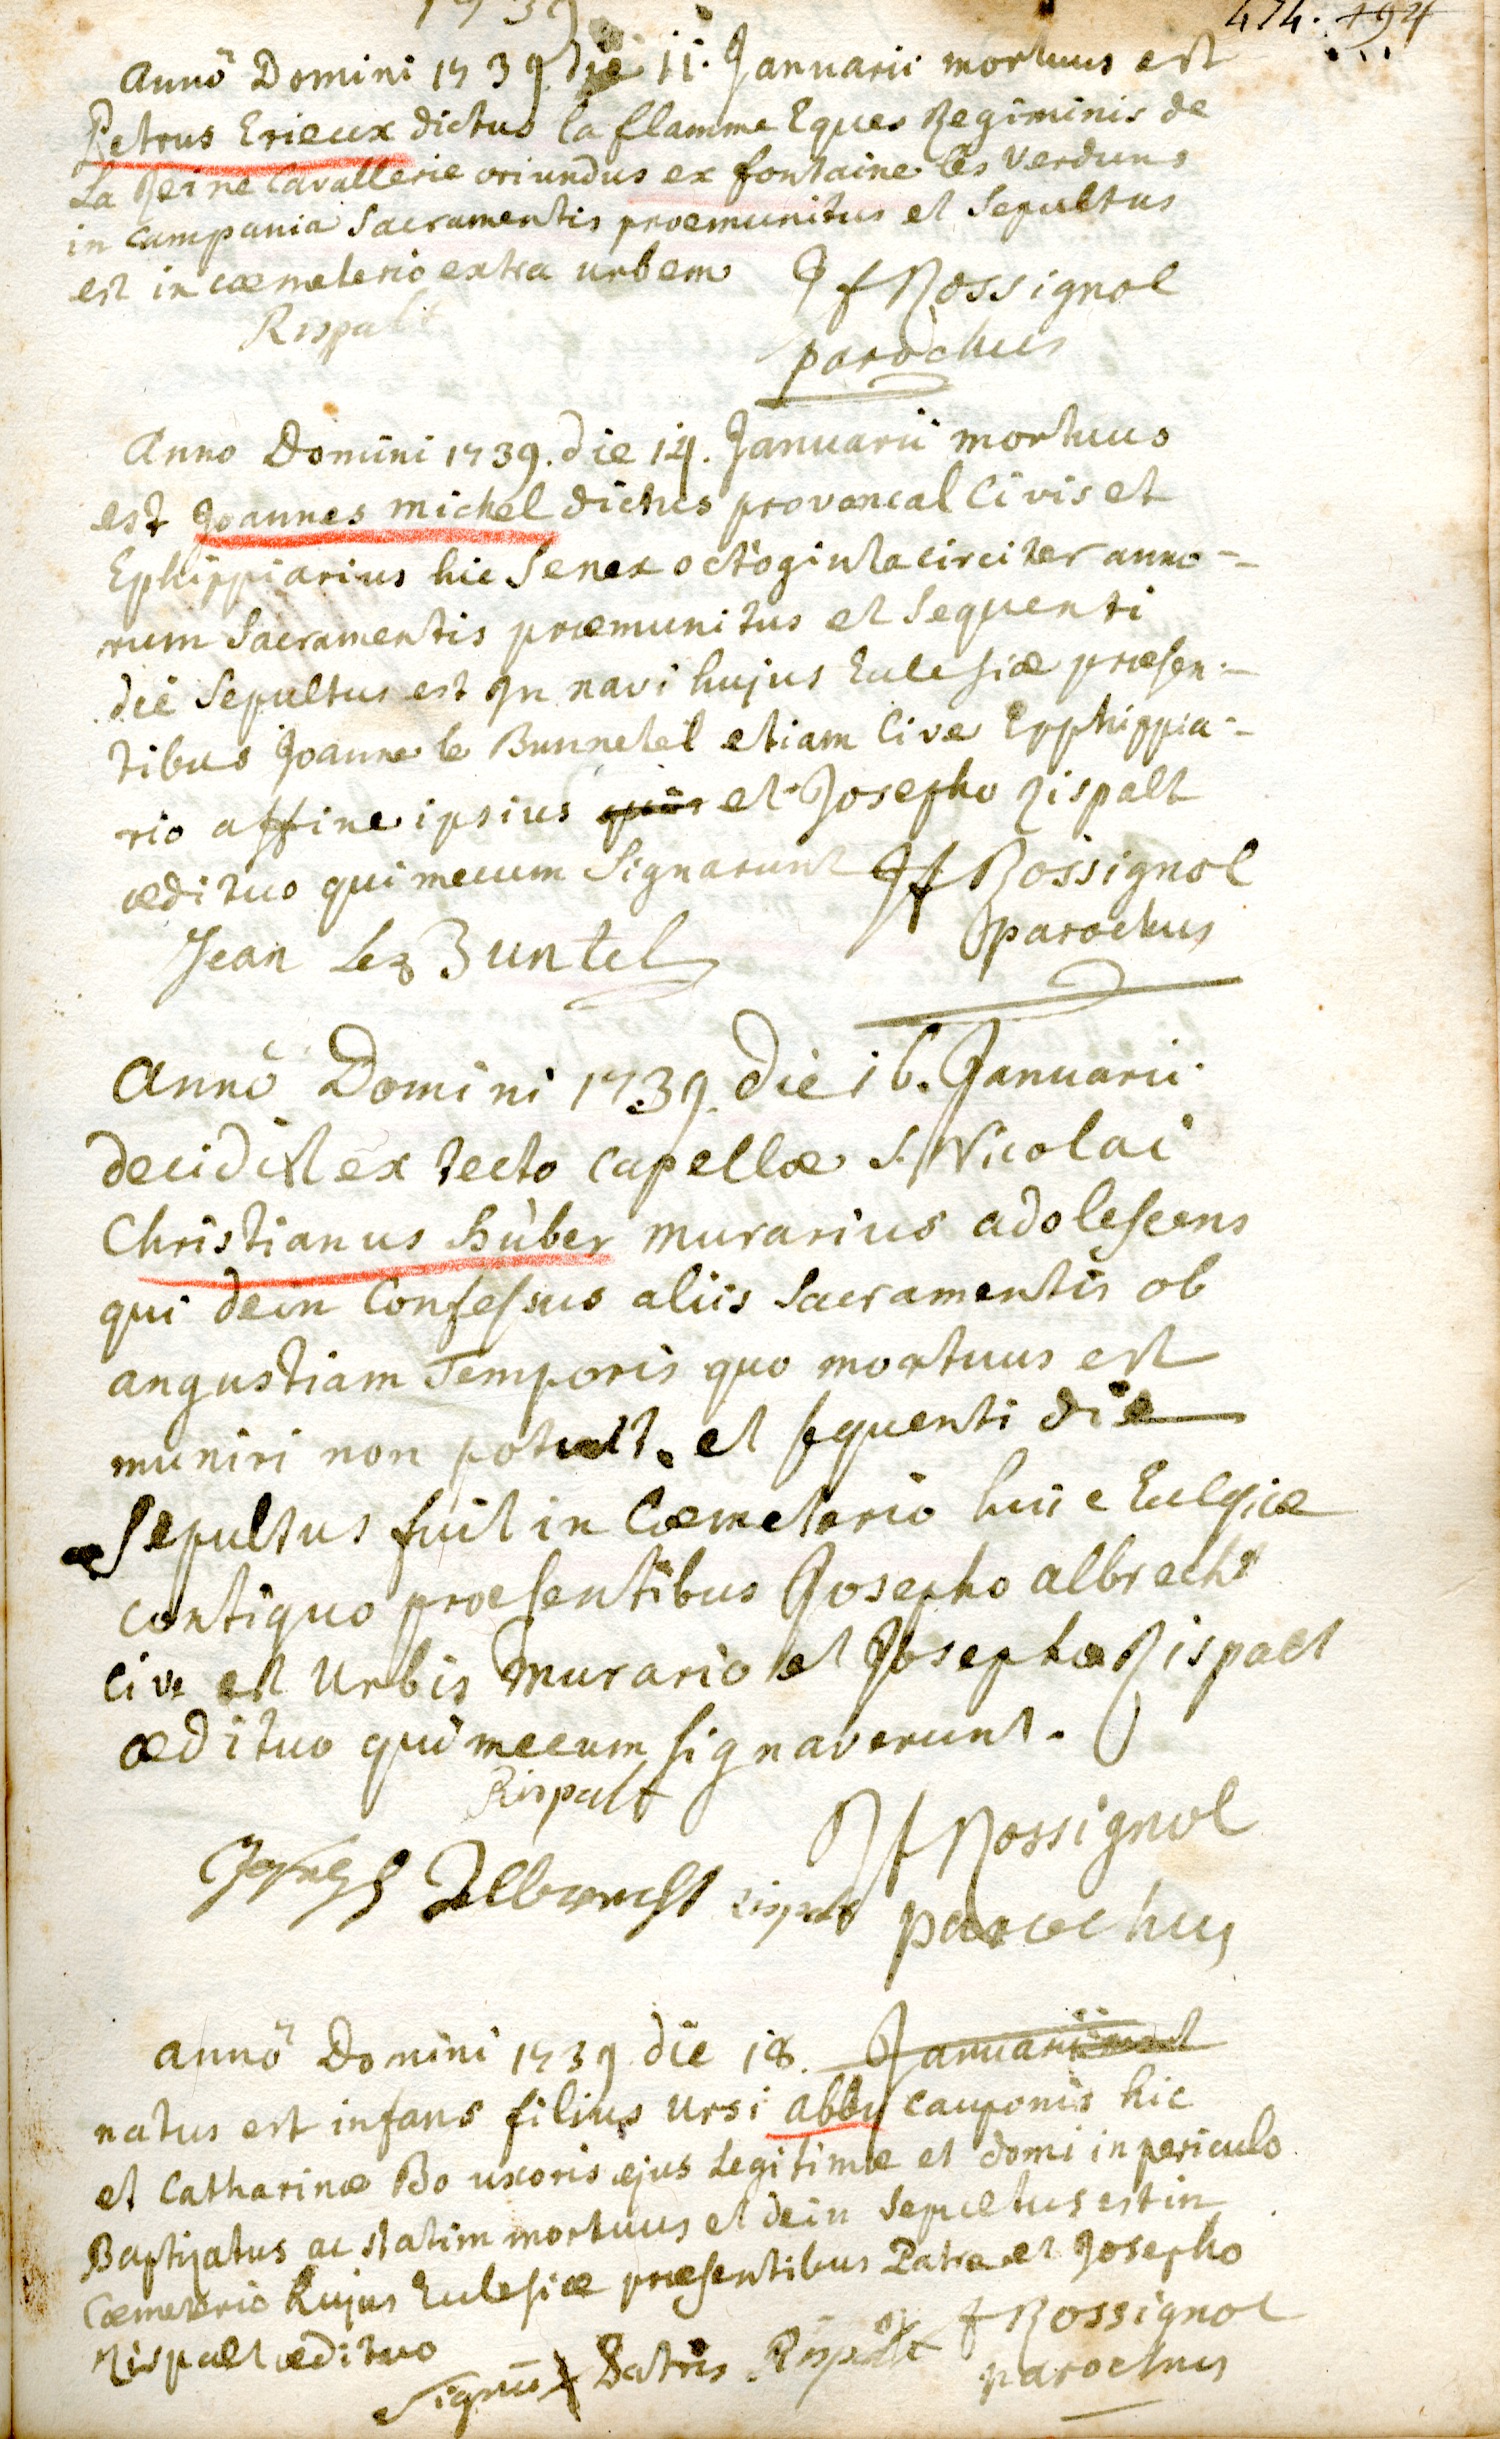 1739
474. 194
Annô Domini 1739 die 11. Januarii mortuus est
Petrus Erieux dictus la flamme Eques Regiminis de
La Reine Cavallerie oriundus ex fontaine les Verduns
in Campania Sacramentis praemunitus et Sepultus
est in caemeterio extra urbem J f Rossignol
Rispalt parochus
Anno Domini 1739. die 14. Januarii mortuus
est Joannes Michel dictus provancal Civis et
Ephippiarius hic Senex octoginta circiter anno-
rum Sacramentis praemunitus et Sequenti
die Sepultus est In navi hujus Eclesiae praesen-
tibus Joanne le Bunnetel etiam Cive Epphippia-
rio affine ipsius et Josepho Rispalt
aedituo qui mecum Signarunt J f Rossignol
Jean Le Buntel parochus
Annô Domini 1739. die 16. Januarii
decidit ex tecto capellae S. Nicolai
Christianus Hùber murarius adolescens
qui dein Confessus aliis Sacramentis ob
angustiam Temporis quo mortuus est
muniri non potuit. et sequenti die
Sepultus fuit in Caemeterio huic Eclesiae
contiguo praesentibus Josepho albrecht
Cive et Urbis Murario et Josepho Rispalt
aedituo qui mecum signaverunt.
Rispalt J f Rossignol
Joseph Albrecht Rispalt parochus
annô Domini 1739 die 18. Januarii
natus est infans filius Ursi abby cauponis hic
et Catharinae Bo uxoris ejus Legitimae et domi in periculo
Baptizatus ac statim mortuus et dein Sepultus est in
Caemeterio hujus Eclesiae praesentibus Patre et Josepho
Rispalt aedituo J f Rossignol
Signū X Patris Rispalt parochus